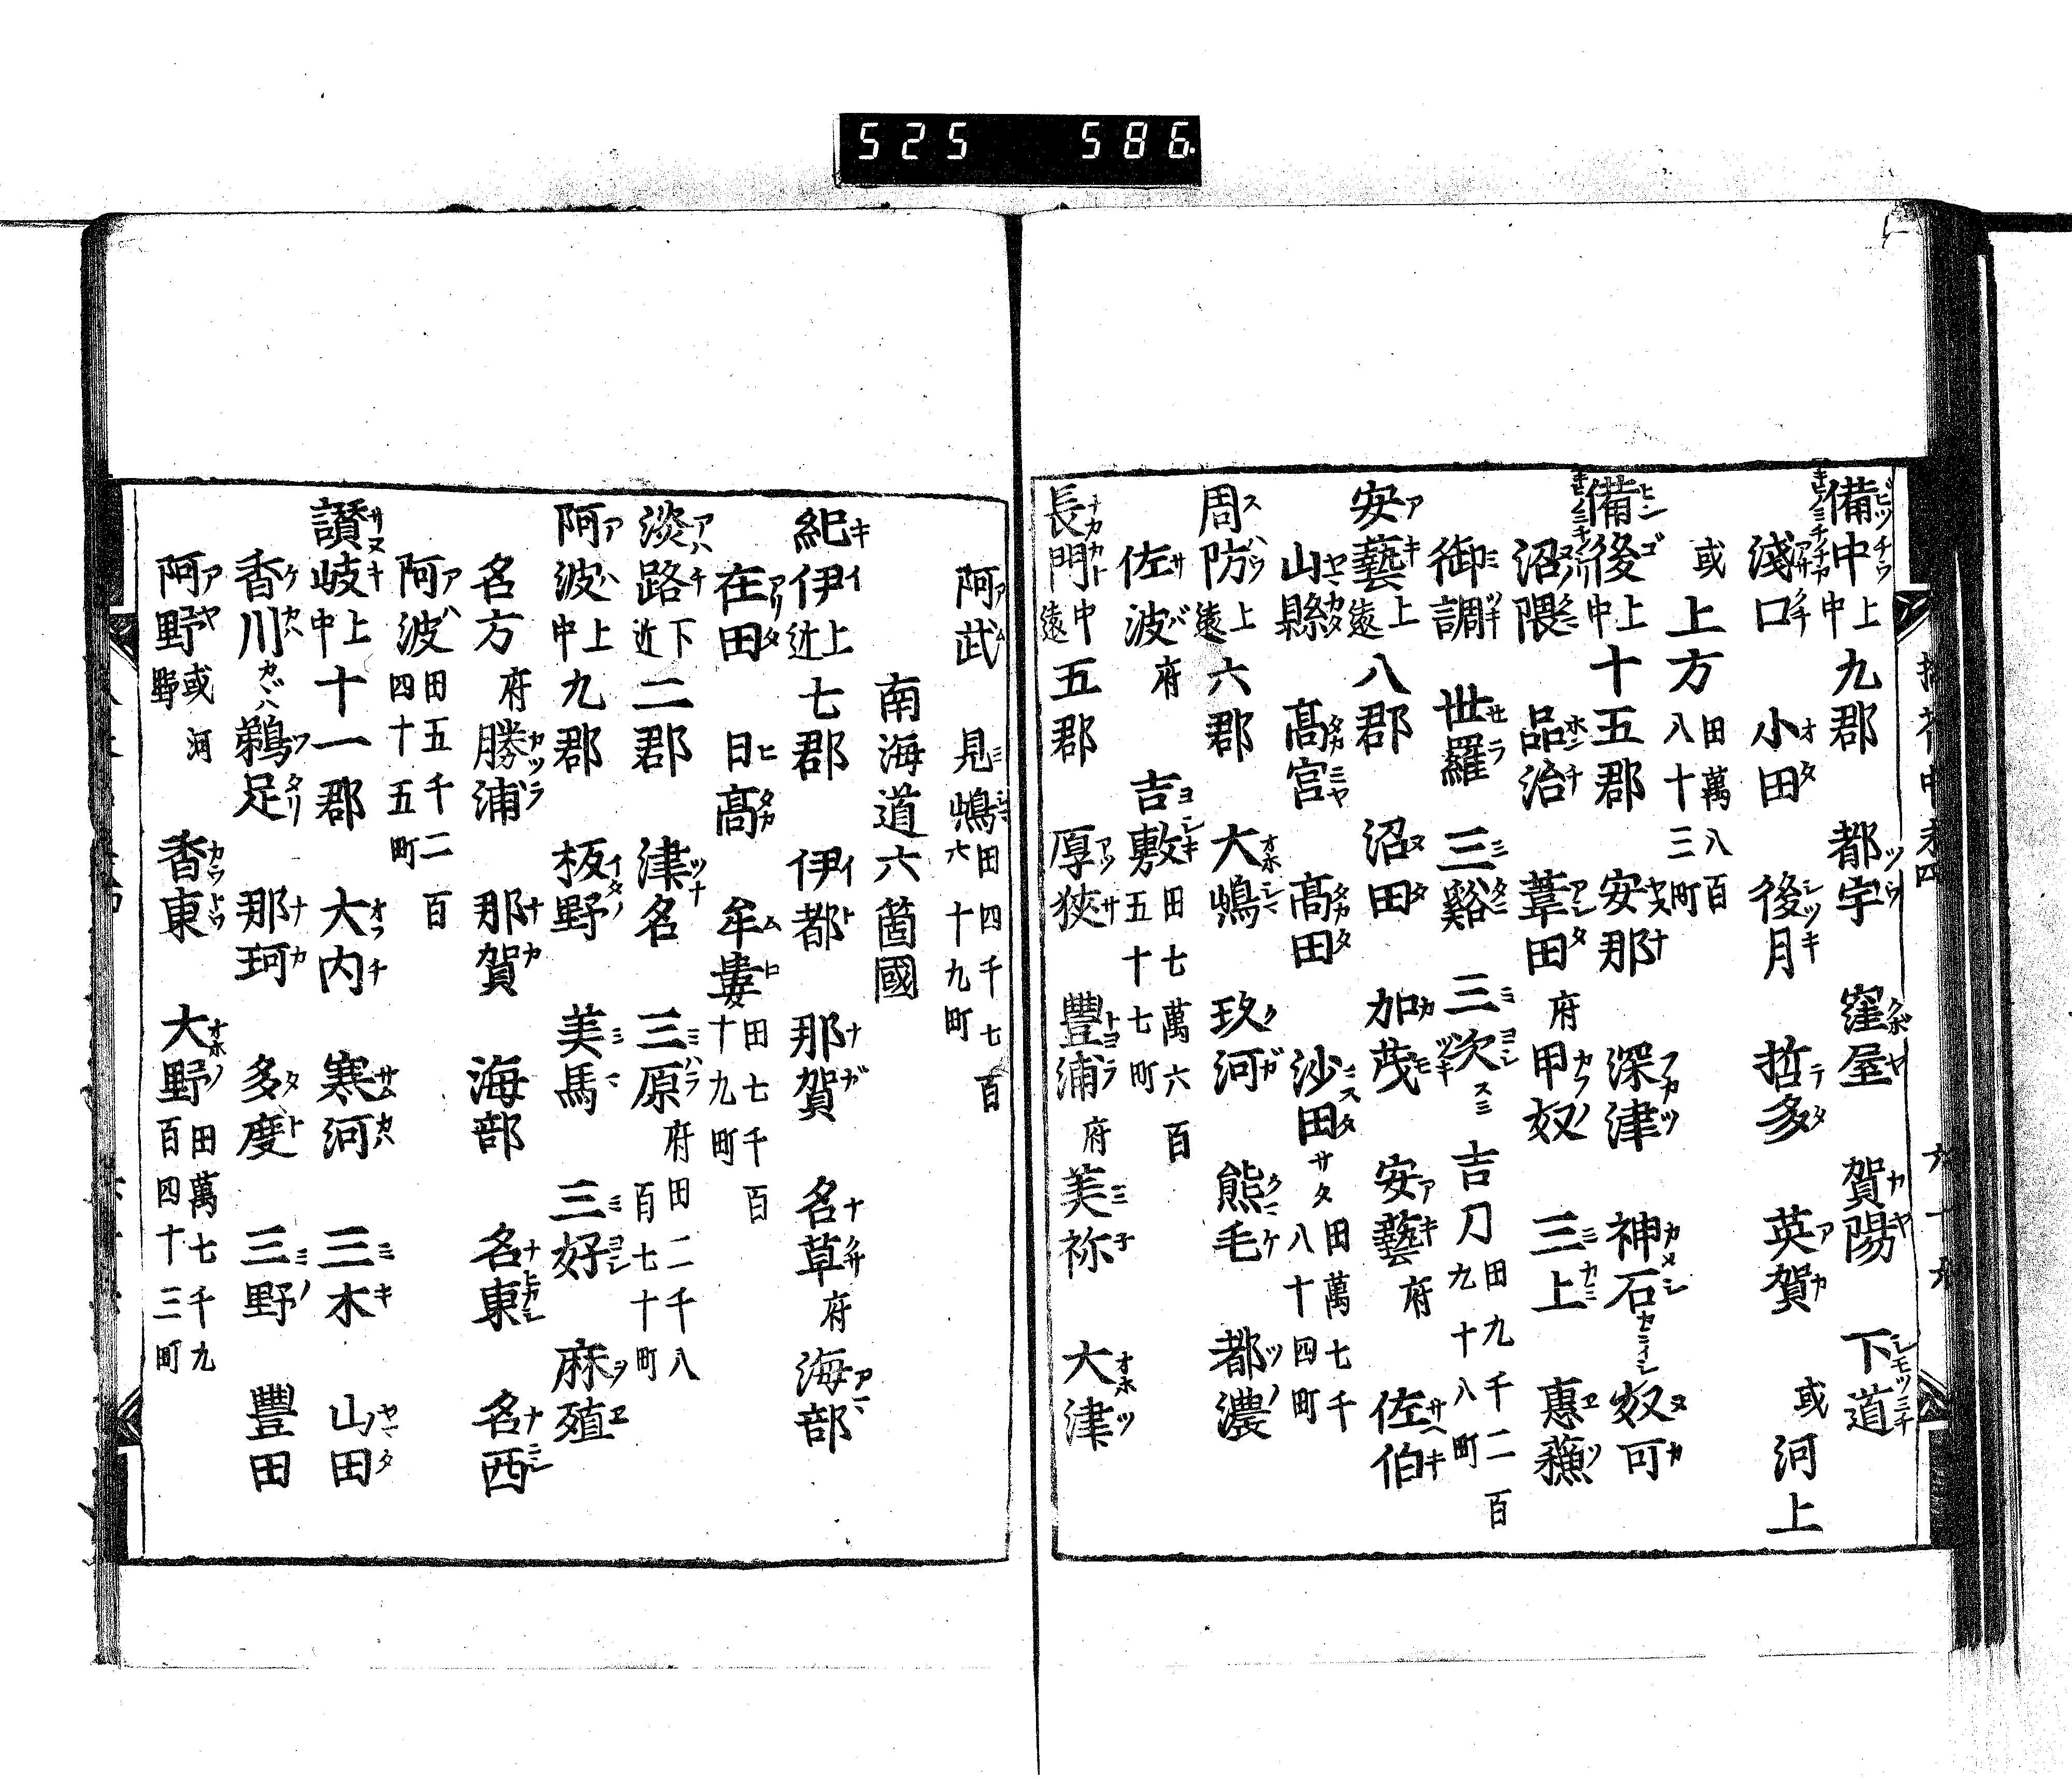 525 586.
備中上中九郡 都宇 窪屋 賀陽 下道
淺口 小田 後月 哲多 英賀 或河上
或上方田萬八百八十三町
備後上中十五郡 安那 深津 神石カミイシ奴可
沼隈 品治 葦田府甲奴 三上 惠蘓
御調 世羅 三谿 三次スミ吉刀田九千二百九十八町
安藝上遠八郡 沼田 加茂 安藝府 佐伯
山縣 髙宮 髙田 沙田サタ田萬七千八十四町
周防上遠六郡 大嶋 玖河 熊毛 都濃
佐波府 吉敷田七萬六百五十七町
長門中遠五郡 厚狹 豐浦府美祢 大津
阿武 見嶋田四千七百六十九町
南海道六箇國
紀伊上近七郡 伊都 那賀 名草府海部
在田 日髙 牟婁田七千百十九町
淡路下近二郡 津名 三原府田二千八百七十町
阿波上中九郡 板野 美馬 三好 麻殖
名方府勝浦 那賀 海部 名東 名西
阿波田五千二百四十五町
讃岐上中十一郡 大内 寒河 三木 山田
香川カヾハ鵜足 那珂 多度 三野 豐田
阿野或河野 香東 大野田萬七千九百四十三町